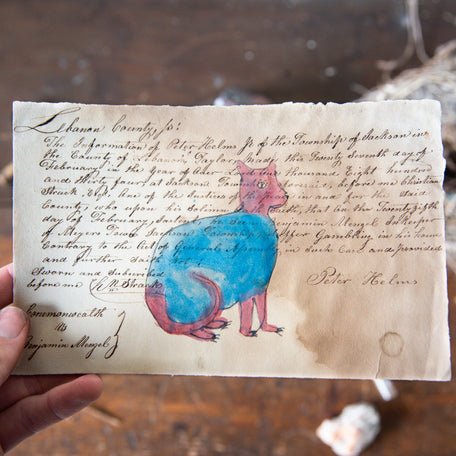 Lebanon County, Ss:
The Information of Peter Helms Jr of the Township of Jackson in
the County of Lebanon Taylor made this Twenty Seventh day of
February in the Year of Our Lord One thousand Eight hundred
and thirty four, at Jackson Township aforesaid, before me Christian
Strack, Esqr. One of the Justices of the peace in and for said
County, who upon his Solemn, that on the Twenty fifth
day of February, Benjamin Mengel Inkeeper
of Myers Town Jackson Township, Suffer Gambling in his house
Contrary to the Act of in such Case and provided
and further saith not.
Sworn and Subscribed
before me Strack Peter Helms
Commonwealth
vs
Benjamin Mengel